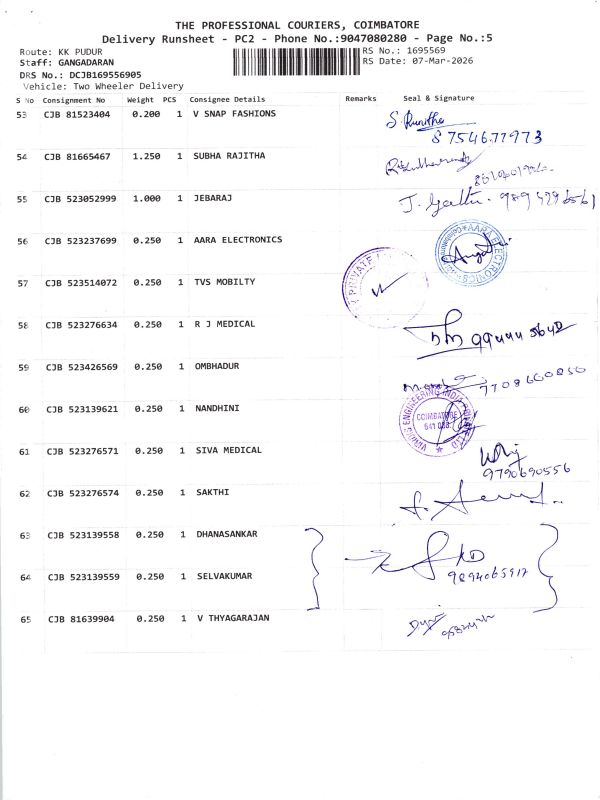 THE PROFESSIONAL COURIERS, COIMBATORE
Delivery Runsheet - PC2 - Phone No.:9047080280 - Page No.:5
Route: KK PUDUR
RS No.: 1695569
Staff: GANGADARAN
RS Date: 07-Mar-2026
DRS No.: DCJB169556905
Vehicle: Two Wheeler Delivery
S No Consignment No Weight PCS Consignee Details Remarks Seal & Signature
53 CJB 81523404 0.200 1 V SNAP FASHIONS
8754677973
54 CJB 81665467 1.250 1 SUBHA RAJITHA
55 CJB 523052999 1.000 1 JEBARAJ
56 CJB 523237699 0.250 1 AARA ELECTRONICS
AARA ELECTRONICS
57 CJB 523514072 0.250 1 TVS MOBILTY
PRIVATE
58 CJB 523276634 0.250 1 R J MEDICAL
59 CJB 523426569 0.250 1 OMBHADUR
7708660850
60 CJB 523139621 0.250 1 NANDHINI
ENGINEERING INDIA
COIMBATORE
641
61 CJB 523276571 0.250 1 SIVA MEDICAL
9790690556
62 CJB 523276574 0.250 1 SAKTHI
63 CJB 523139558 0.250 1 DHANASANKAR
9894065917
64 CJB 523139559 0.250 1 SELVAKUMAR
65 CJB 81639904 0.250 1 V THYAGARAJAN